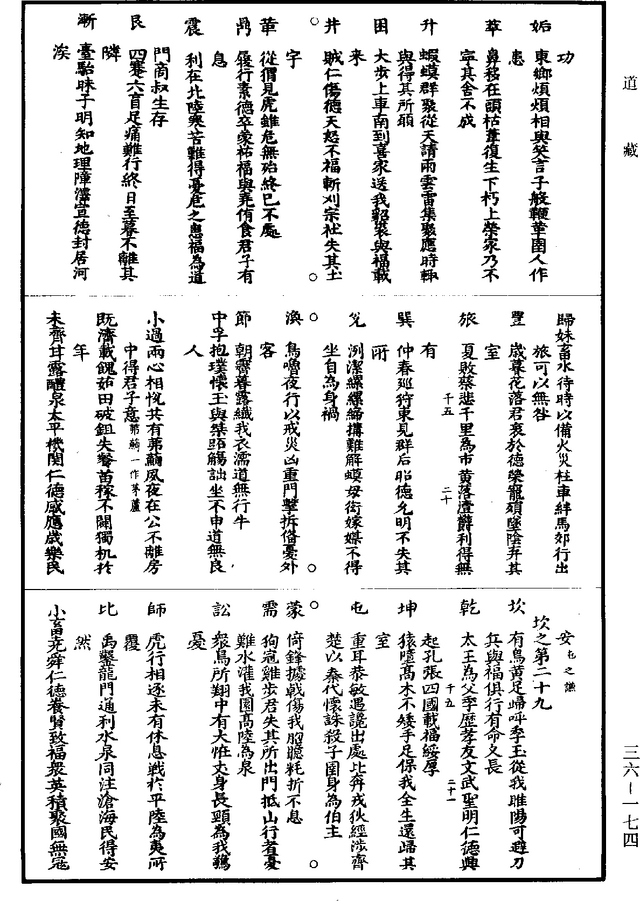 道藏
功
姤　東鄉煩煩相與笑言子般鞭菙圉人作
患
萃　鼻移在頭枯葦復生下朽上榮家乃不
寧其舍不成
升　蝦蟆群聚從天請雨雲雷集聚應時輒
與得其所願
困　大步上車南到喜家送我貂裘與福載
来
井　賊仁傷德天怒不福斬刈宗社失其土
宇
革　從猬見虎雖危無殆終已不處
鼎　履行素德卒蒙祐福與堯侑食君子有
息
震　利在北陸寒苦難得憂危之患福為道
門商叔生存
艮　四蹇六盲足痛難行終日至暮不離其
隣
漸　臺駘昧子明知地理障澤宣德封居河
涘
歸妹　畜水待時以備火災柱車絆馬郊行出
旅可以無咎
豐　歲暮花落君衰於德榮寵頌墜陰弃其
室
旅　夏敗蔡悲千里為市黄落澧欝利得無
有　千五　二十
巽　仲春廵狩東見群后昭德允明不失其
所
兌　洌潔縲縲締搆難解嫫母衒嫁媒不得
坐自為身禍
渙　鳥嚕夜行以戒災凶重門擊拆俻憂外
客
節　朝霽暮露纖我衣濡道無行牛
中孚　抱璞懷玉與桀䫏觴詘坐不申道無良
人
小過　兩心相悅共有茀蘭夙夜在公不離房
中得君子意　茀蘭一作茅蘆
既濟　載餽如田破鉏失餐苗稼不闢獨机於
年
未齊　甘露醴泉太平機関仁德感應歲樂民
安　屯之謙
坎之第二十九
坎　有鳥黄足歸呼季玉從我睢陽可避刀
兵與福俱行有命久長
乾　太王為父季歷孝友文武聖明仁德興
起孔張四國載福綏厚　千五　二十一
坤　猿墮高木不矮手足保我全生還歸其
室
屯　重耳恭敏遇讒出處北奔戎狄經涉齊
楚以秦代懷誅殺子圉身為伯主
蒙　倚鋒據戟傷我胸臆耗折不息
需　狗冦雞步君失其所出門抵山行者憂
難水灌我園髙陸為泉
訟　衆鳥所翔中有大恠丈身長頸為我驚
憂
師　虎行相逐未有休息戰於平陸為夷所
覆
比　禹鑿龍門通利水泉同注滄海民得安
然
小畜　尭舜仁德養賢致福衆英積聚國無冦
三六—一七四